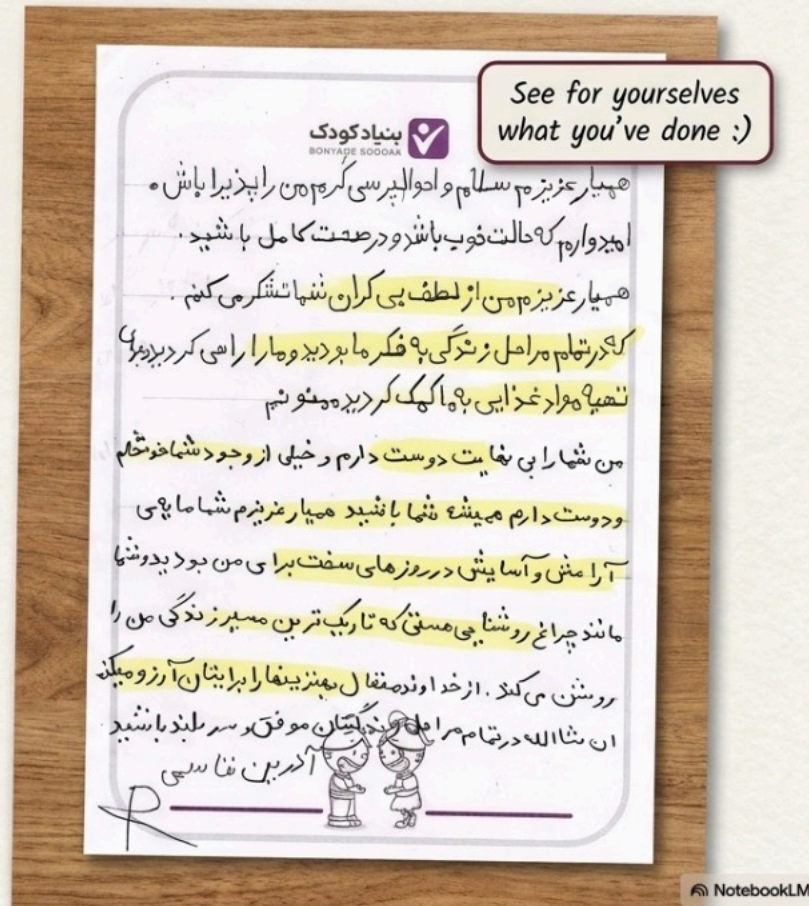 See for yourselves
what you've done :)
بنیاد کودک
BONYADE SOODAK
همیار عزیزم سلام و احوالپرسی گرم من را پذیرا باش.
امیدوارم که حالت خوب باشد و در صحت کامل باشید.
همیار عزیزم من از لطف بی کران شما تشکر می کنم.
که در تمام مراحل زندگی به فکر ما بودید و ما را راهی کردید و برای
تهیه مواد غذایی به ما کمک کردید ممنونم
من شما را بی نهایت دوست دارم و خیلی از وجود شما خوشحالم
و دوست دارم همیشه شما باشید همیار عزیزم شما مایهی
آرامش و آسایش در روز های سخت برای من بودید و شما
مانند چراغ روشنایی هستی که تاریک ترین مسیر زندگی من را
روشن می کند. از خداوند متعال بهترینها را برایتان آرزو میکند
ان شاالله در تمام مراحل زندگیتان موفق و سر بلند باشید
آدرین
NotebookLM